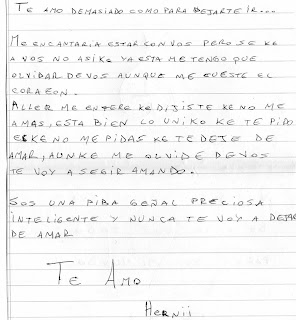 TE AMO DEMASIADO COMO PARA DEJARTE IR...
ME ENCANTARIA ESTAR CON VOS PERO SE KE
A VOS NO ASIKE YA ESTA ME TENGO QUE
OLVIDAR DE VOS AUNQUE ME CUESTE EL
CORAZON.
ALLER ME ENTERE KE DIJISTE KE NO ME
AMAS, ESTA BIEN LO UNIKO KE TE PIDO
ES KE NO ME PIDAS KE TE DEJE DE
AMAR, AUNKE ME OLVIDE DE VOS
TE VOY A SEGIR AMANDO.
SOS UNA PIBA GENIAL PRECIOSA
INTELIGENTE Y NUNCA TE VOY A DEJAR
DE AMAR
TE AMO
HERNII